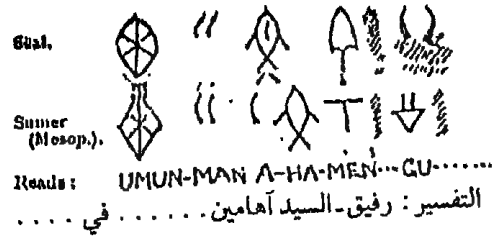 Sûal.
Sumer
(Mesop.).
Reads: UMUN-MAN A-HA-MEN...GU.......
التفسير : رفيق ـ السيد آهامين ...... في ....